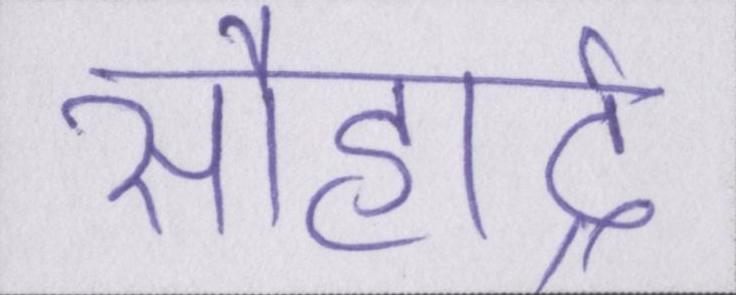 सौहार्द्र